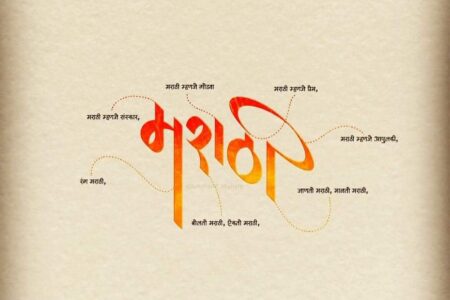 मराठी म्हणजे गोडवा
मराठी म्हणजे प्रेम,
मराठी म्हणजे संस्कार,
मराठी
मराठी म्हणजे आपुलकी,
रंग मराठी,
जाणती मराठी, मानती मराठी,
बोलती मराठी, ऐकती मराठी,